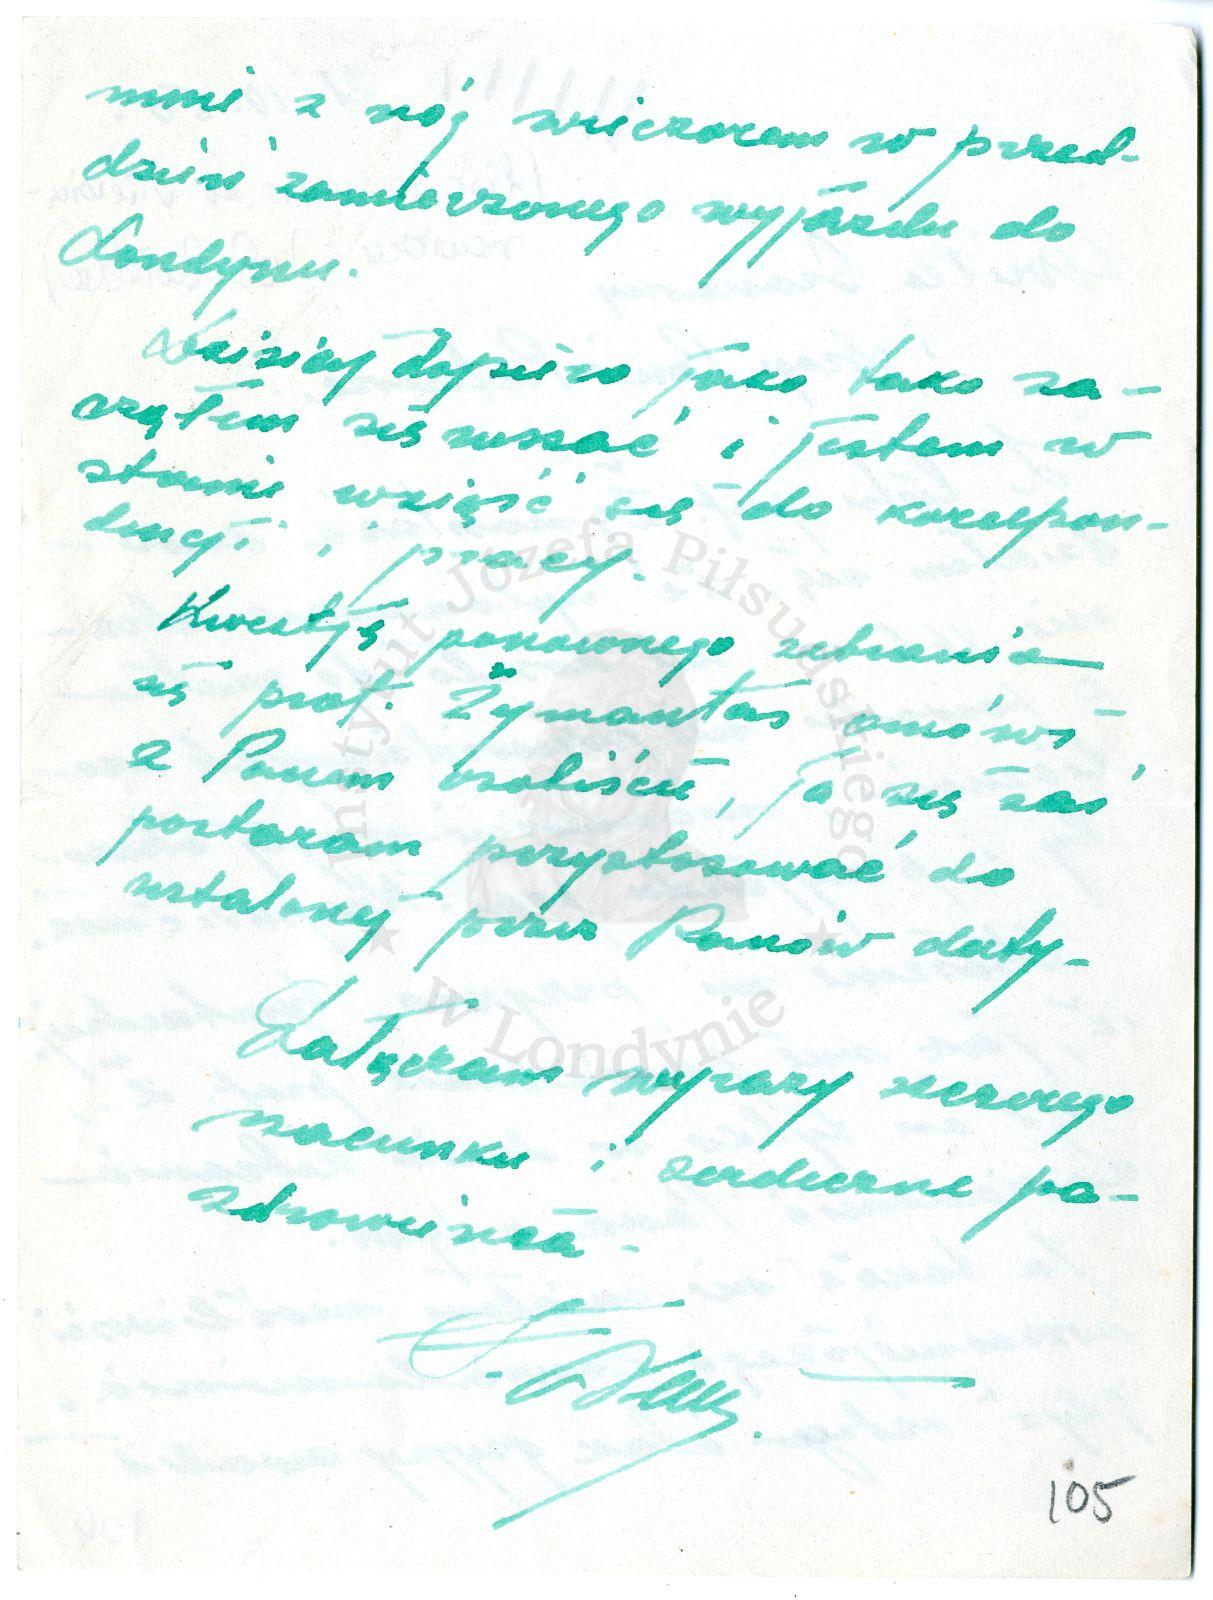 mnie z nóg wieczorem w przed-
dzień zamierzonego wyjazdu do
Londynu.
Dzisiaj dopiero jako tako za-
cząłem się ruszać i jestem w
stanie wziąść się do korespon-
dencji i pracy.
Kwestję ponownego zebrania
się prof. Żymantas omówi
z Panem osobiście, ja się zaś
postaram przystosować do
ustalonej przez Panów daty.
Załączam wyrazy szczerego
szacunku i serdeczne po-
zdrowienia.
105
Instytut Józefa Piłsudskiego
w Londynie